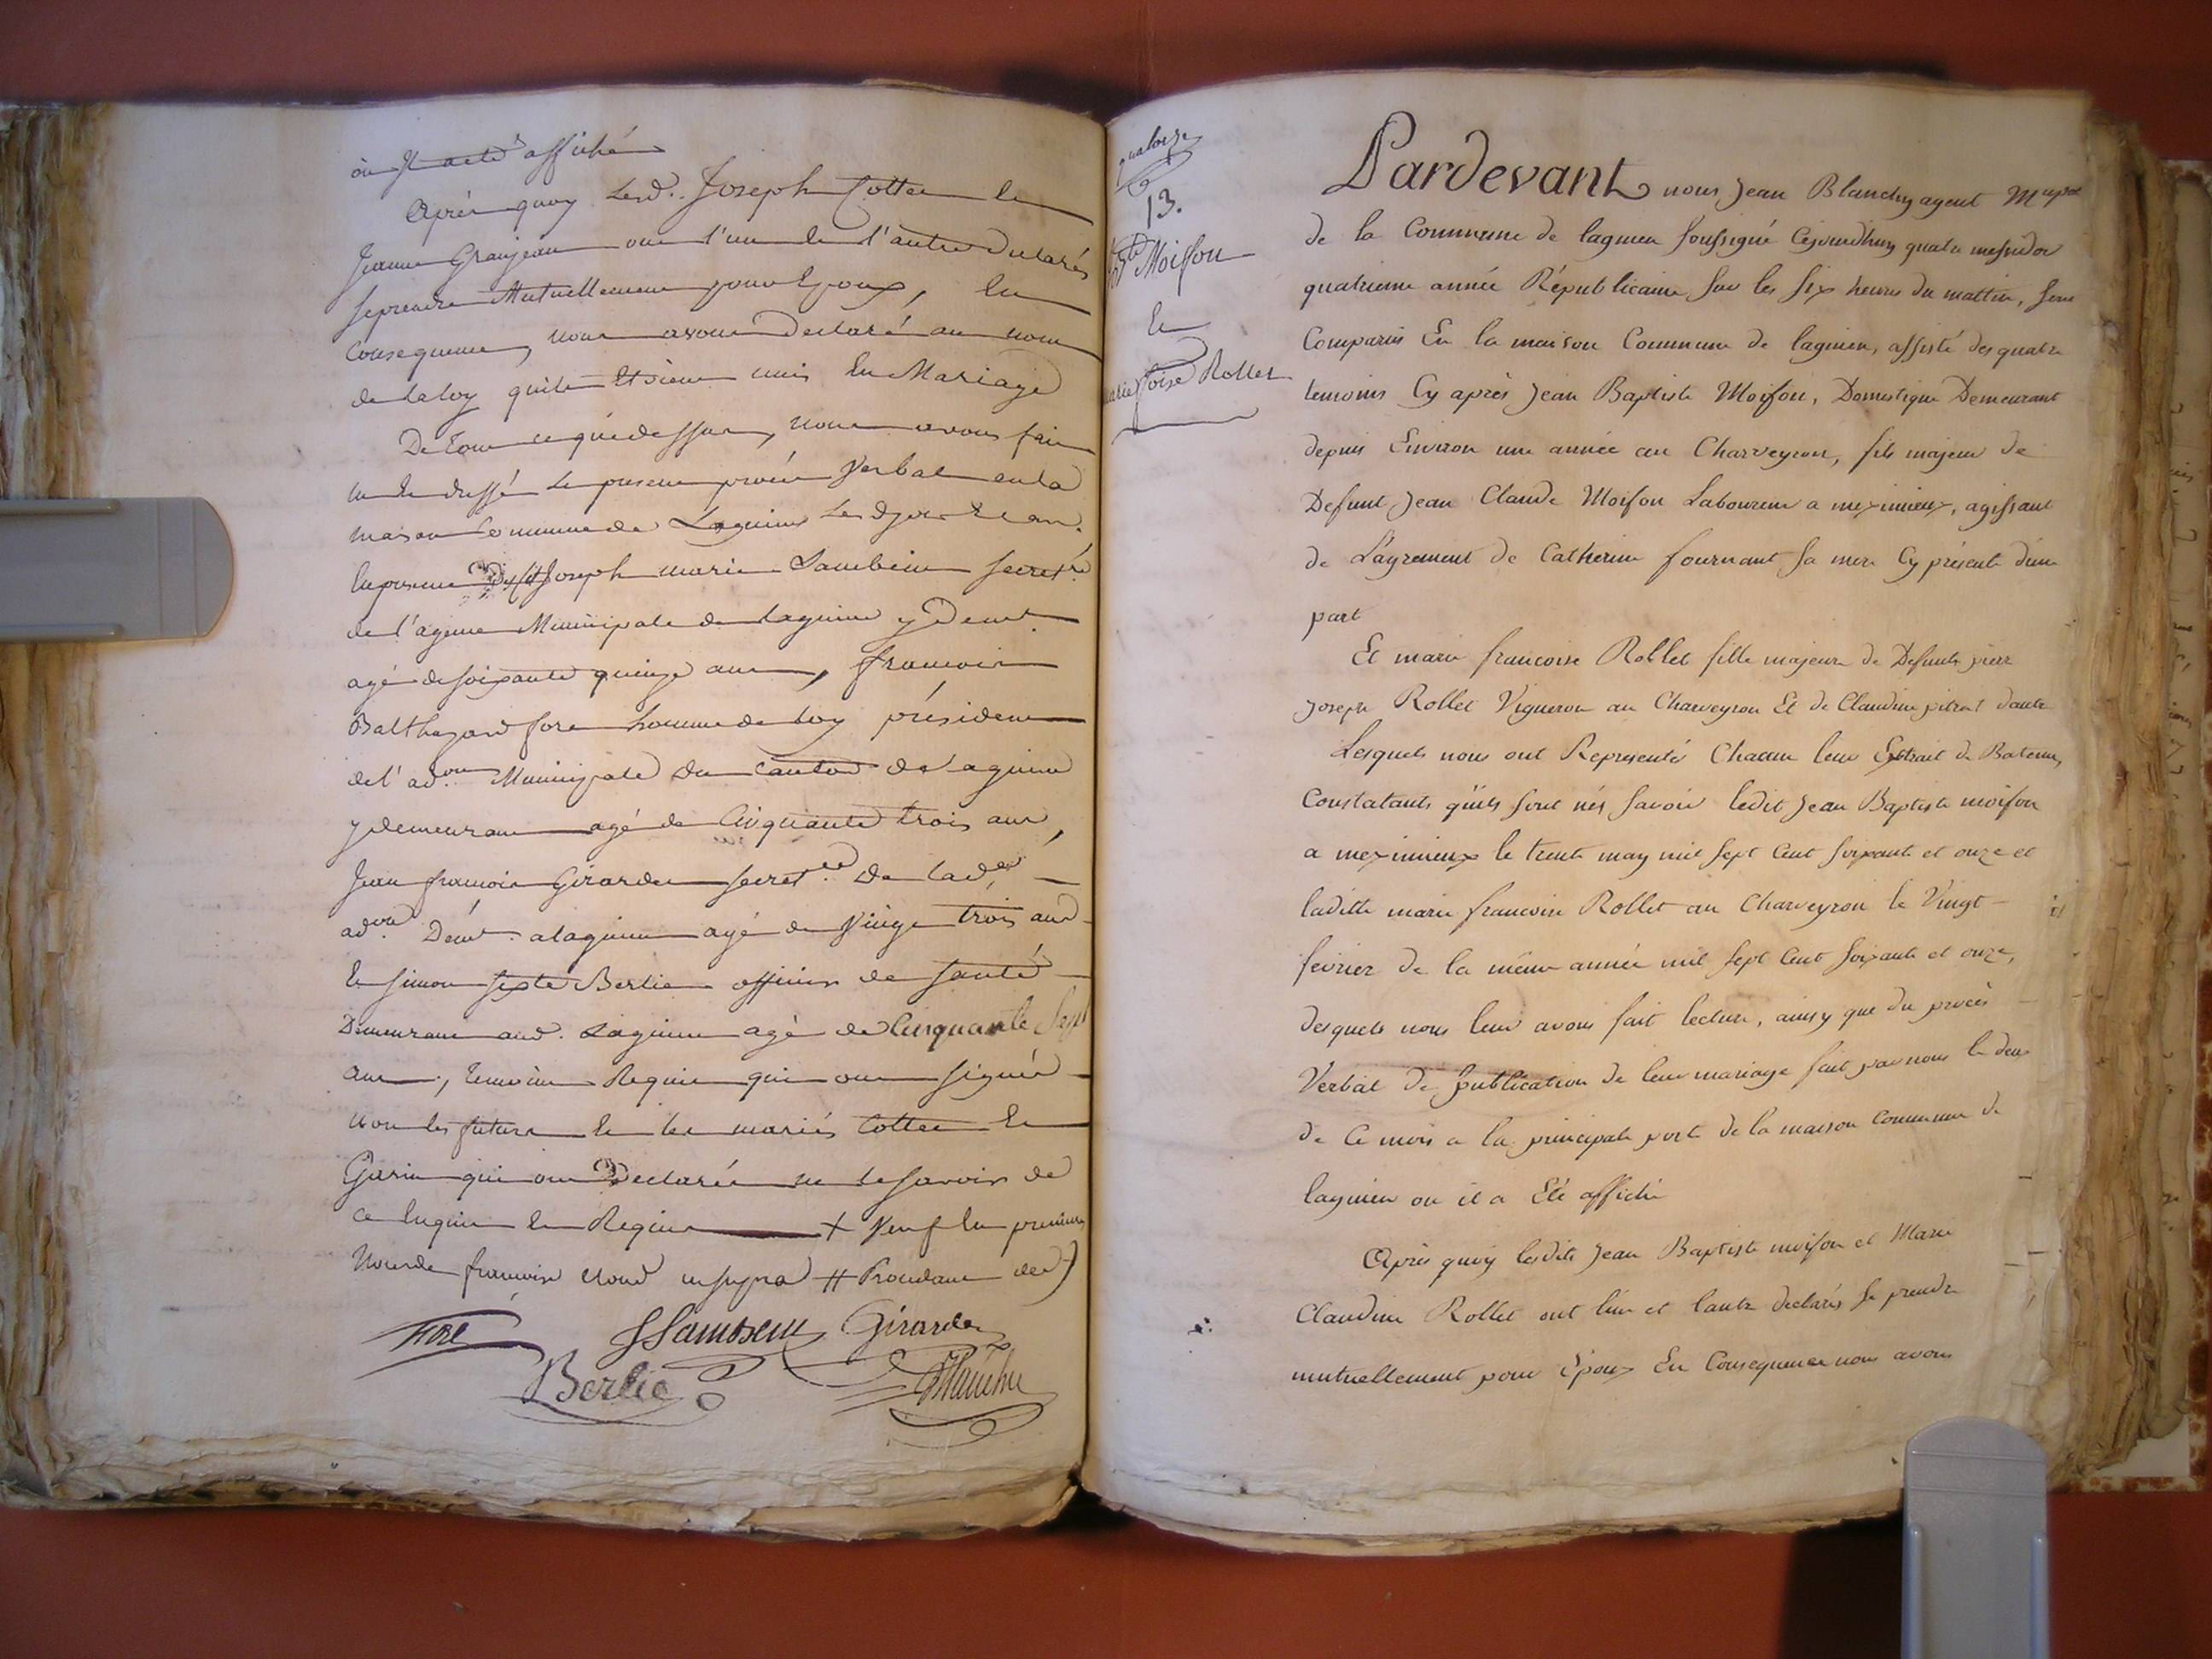 où Il a eté affiché
Après quoy Lesd. Joseph Cottee Et
Jeanne Granjean ont l'un Et l'autre Declarés
se prendre Mutuellement pour Epoux, En
Consequence, nous avons Declaré au nom
de la loy qu'ils Etoient unis En Mariage
De tout ce que dessus, nous avons fait
Et dressé Le present procès Verbal en la
maison Commune de Lagnieu Lesd jour Et an.
En presence Joseph marie Lambein secret.re
de l'agence Municipale de Lagnieu y Demt
agé de soixante quinze ans, francois
Balthazard fore homme de loy président
de l'ad.on Municipale du canton de Lagnieu
y demeurant agé de Cinquante trois ans,
Jean francois Girardee secret.re De lad.
ad.on Demt. a lagnieu agé de Vingt trois ans
Et Simon sixte Berlie officier de santé
Demeurant aud. Lagnieu agé de Cinquante Sept
ans, temoins Requis qui ont signé
non les futurs Et les mariés Cottee Et
Garin qui ont Declaré ne le savoir de
ce Enquis Et Requis + Veuf En premieres
Noces de francoise ut supra # Procedant de
Fore JLambein Girardee
Berlie Blanchy
quatorze
13.
Bte Moisson
Et
marie foise Rollet
Pardevant nous Jean Blanchy agent Mupal
de la Commune de lagnieu soussigné Cejourdhuy quatre messidor
quatrieme année Républicaine sur les six heures du mattin, sont
Comparus En la maison Commune de lagnieu, assisté des quatre
temoins Cy après Jean Baptiste Moisson, Domestique Demeurant
depuis Environ une année au Charveyron, fils majeur de
Defunt Jean Claude Moisson Laboureur a meximieux, agissant
de L'agrement de Catherine fournant sa mere Cy présente d'une
part
Et marie francoise Rollet fille majeure de Defunts pierre
Joseph Rollet Vigneron au Charveyron Et de Claudine pitrat d'autre
Lesquels nous ont Representé Chacun leur Extrait de Bateme,
Constatants qu'ils sont nés savoir ledit Jean Baptiste moisson
a meximieux le trente may mil sept Cent soixante et onze et
laditte marie francoise Rollet au Charveyron le Vingt
fevrier de la même année mil sept Cent soixante et onze,
desquels nous leur avons fait lecture, ainsy que du procès
Verbal De publication de leur mariage fait par nous le deux
de Ce mois a la principale porte de la maison Commune de
lagnieu ou il a Eté affiché
Après quoy lesdits Jean Baptiste moisson et Marie
Claudine Rollet ont l'un et l'autre declarés se prendre
mutuellement pour Epoux En Consequence nous avons